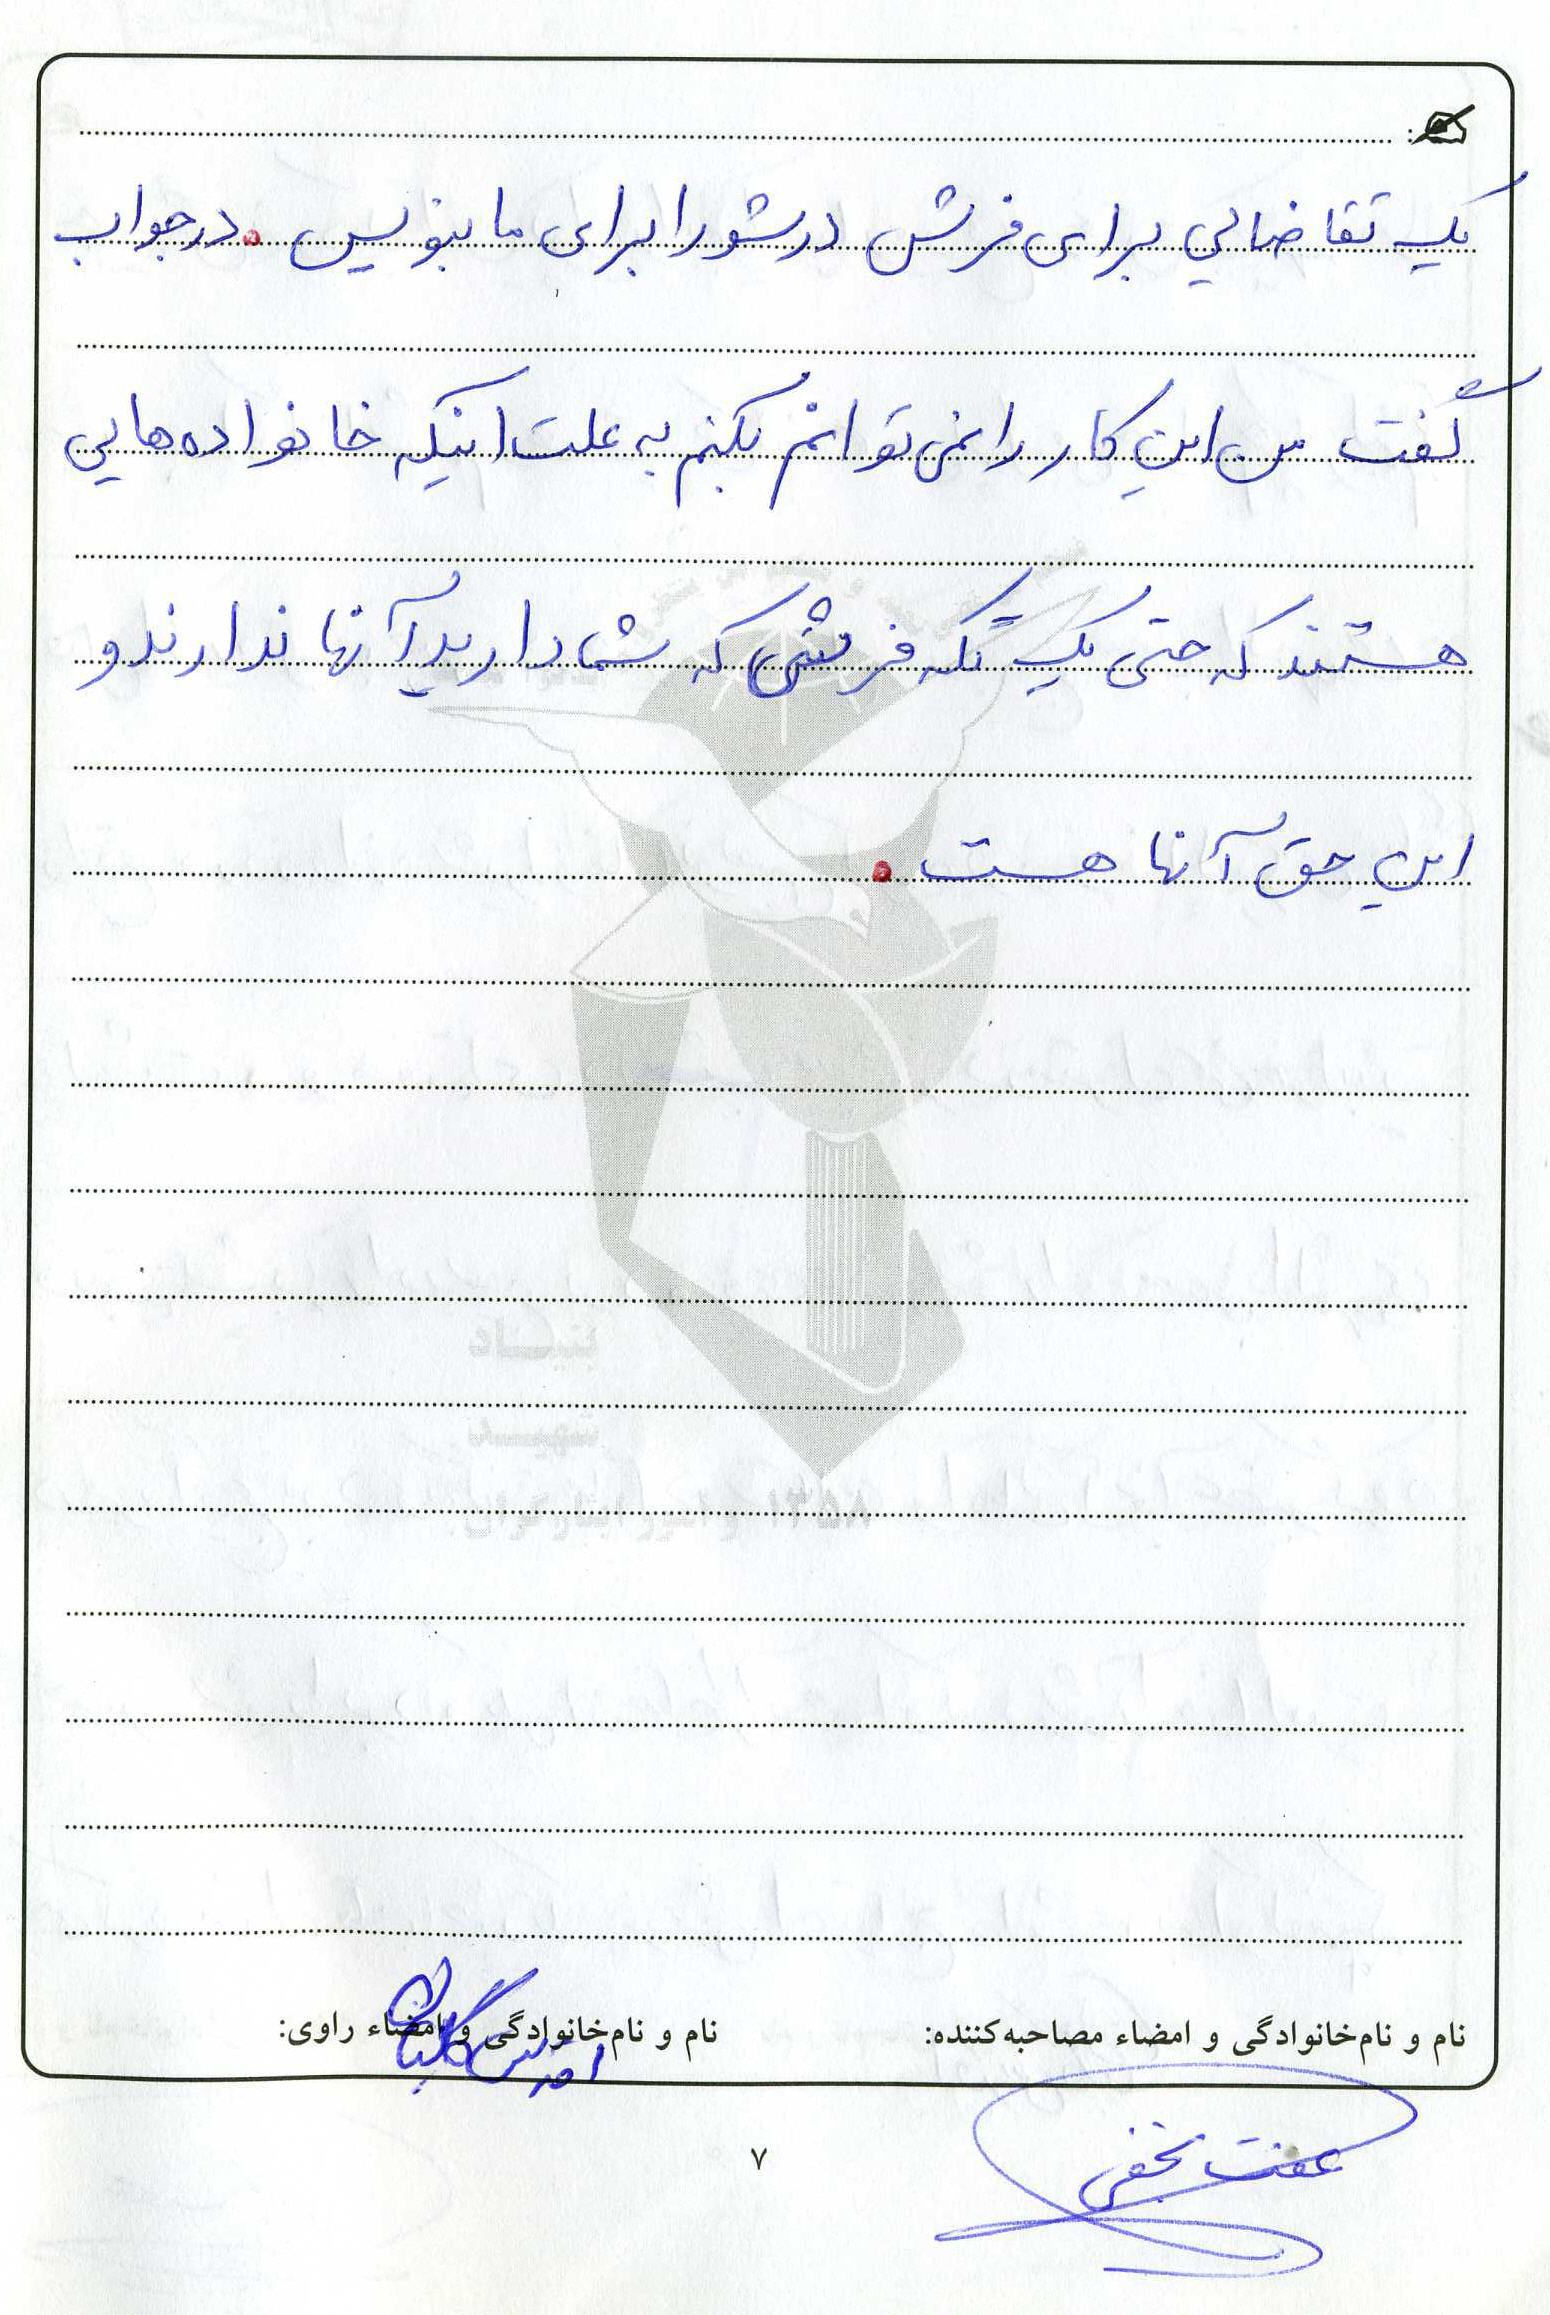 یک تقاضایی برای فرش در شورا برای ما بنویس . در جواب
گفت من این کار را نمی توانم بکنم به علت اینکه خانواده هایی
هستند که حتی یک تکه فرشی که شما دارید آنها ندارند و
این حق آنها هست .
بنیاد
شهید
نام و نام‌خانوادگی و امضاء مصاحبه‌کننده:
نام و نام‌خانوادگی و امضاء راوی:
عفت نجفی
۷